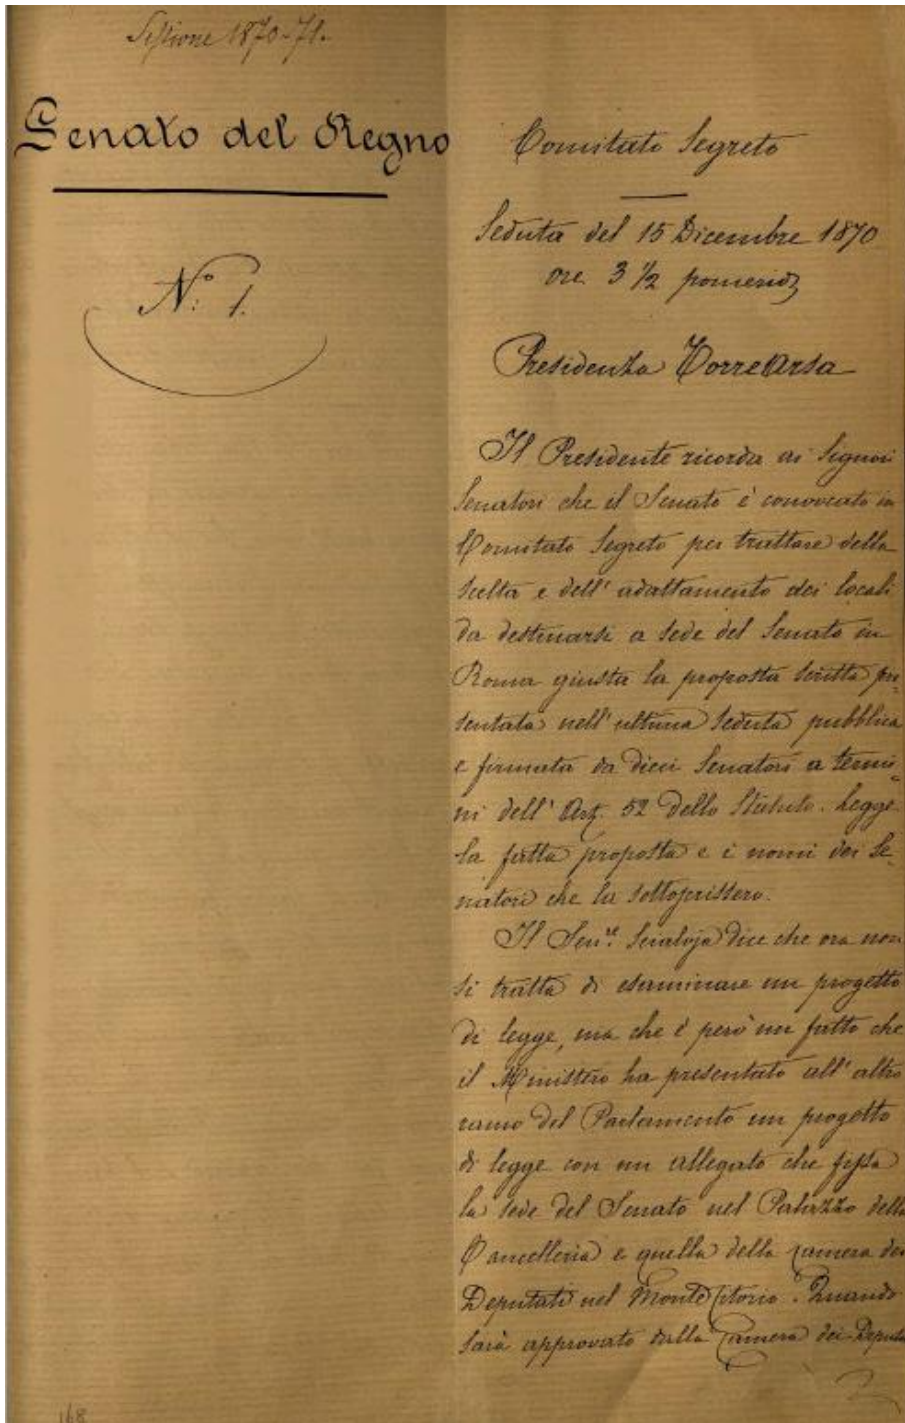 Sessione 1870-71.
Senato del Regno
N.º 1.
Comitato Segreto
Seduta del 15 Dicembre 1870
ore 3 1/2 pomerid
Presidenza Torrearsa
Il Presidente ricorda ai Signori
Senatori che il Senato è convocato in
Comitato Segreto per trattare della
scelta e dell'adattamento dei locali
da destinarsi a sede del Senato in
Roma giusta la proposta scritta pre-
sentata nell'ultima seduta pubblica
e firmata da dieci Senatori a termi-
ni dell'Art. 52 dello Statuto. Legge
la fatta proposta e i nomi dei Se-
natori che la sottoscrissero.
Il Sen.re Scialoja dice che ora non
si tratta di esaminare un progetto
di legge, ma che è però un fatto che
il Ministero ha presentato all'altro
ramo del Parlamento un progetto
di legge con un allegato che fissa
la sede del Senato nel Palazzo della
Cancelleria e quella della Camera dei
Deputati nel Monte Citorio. Quando
sarà approvato dalla Camera dei Deputa
168